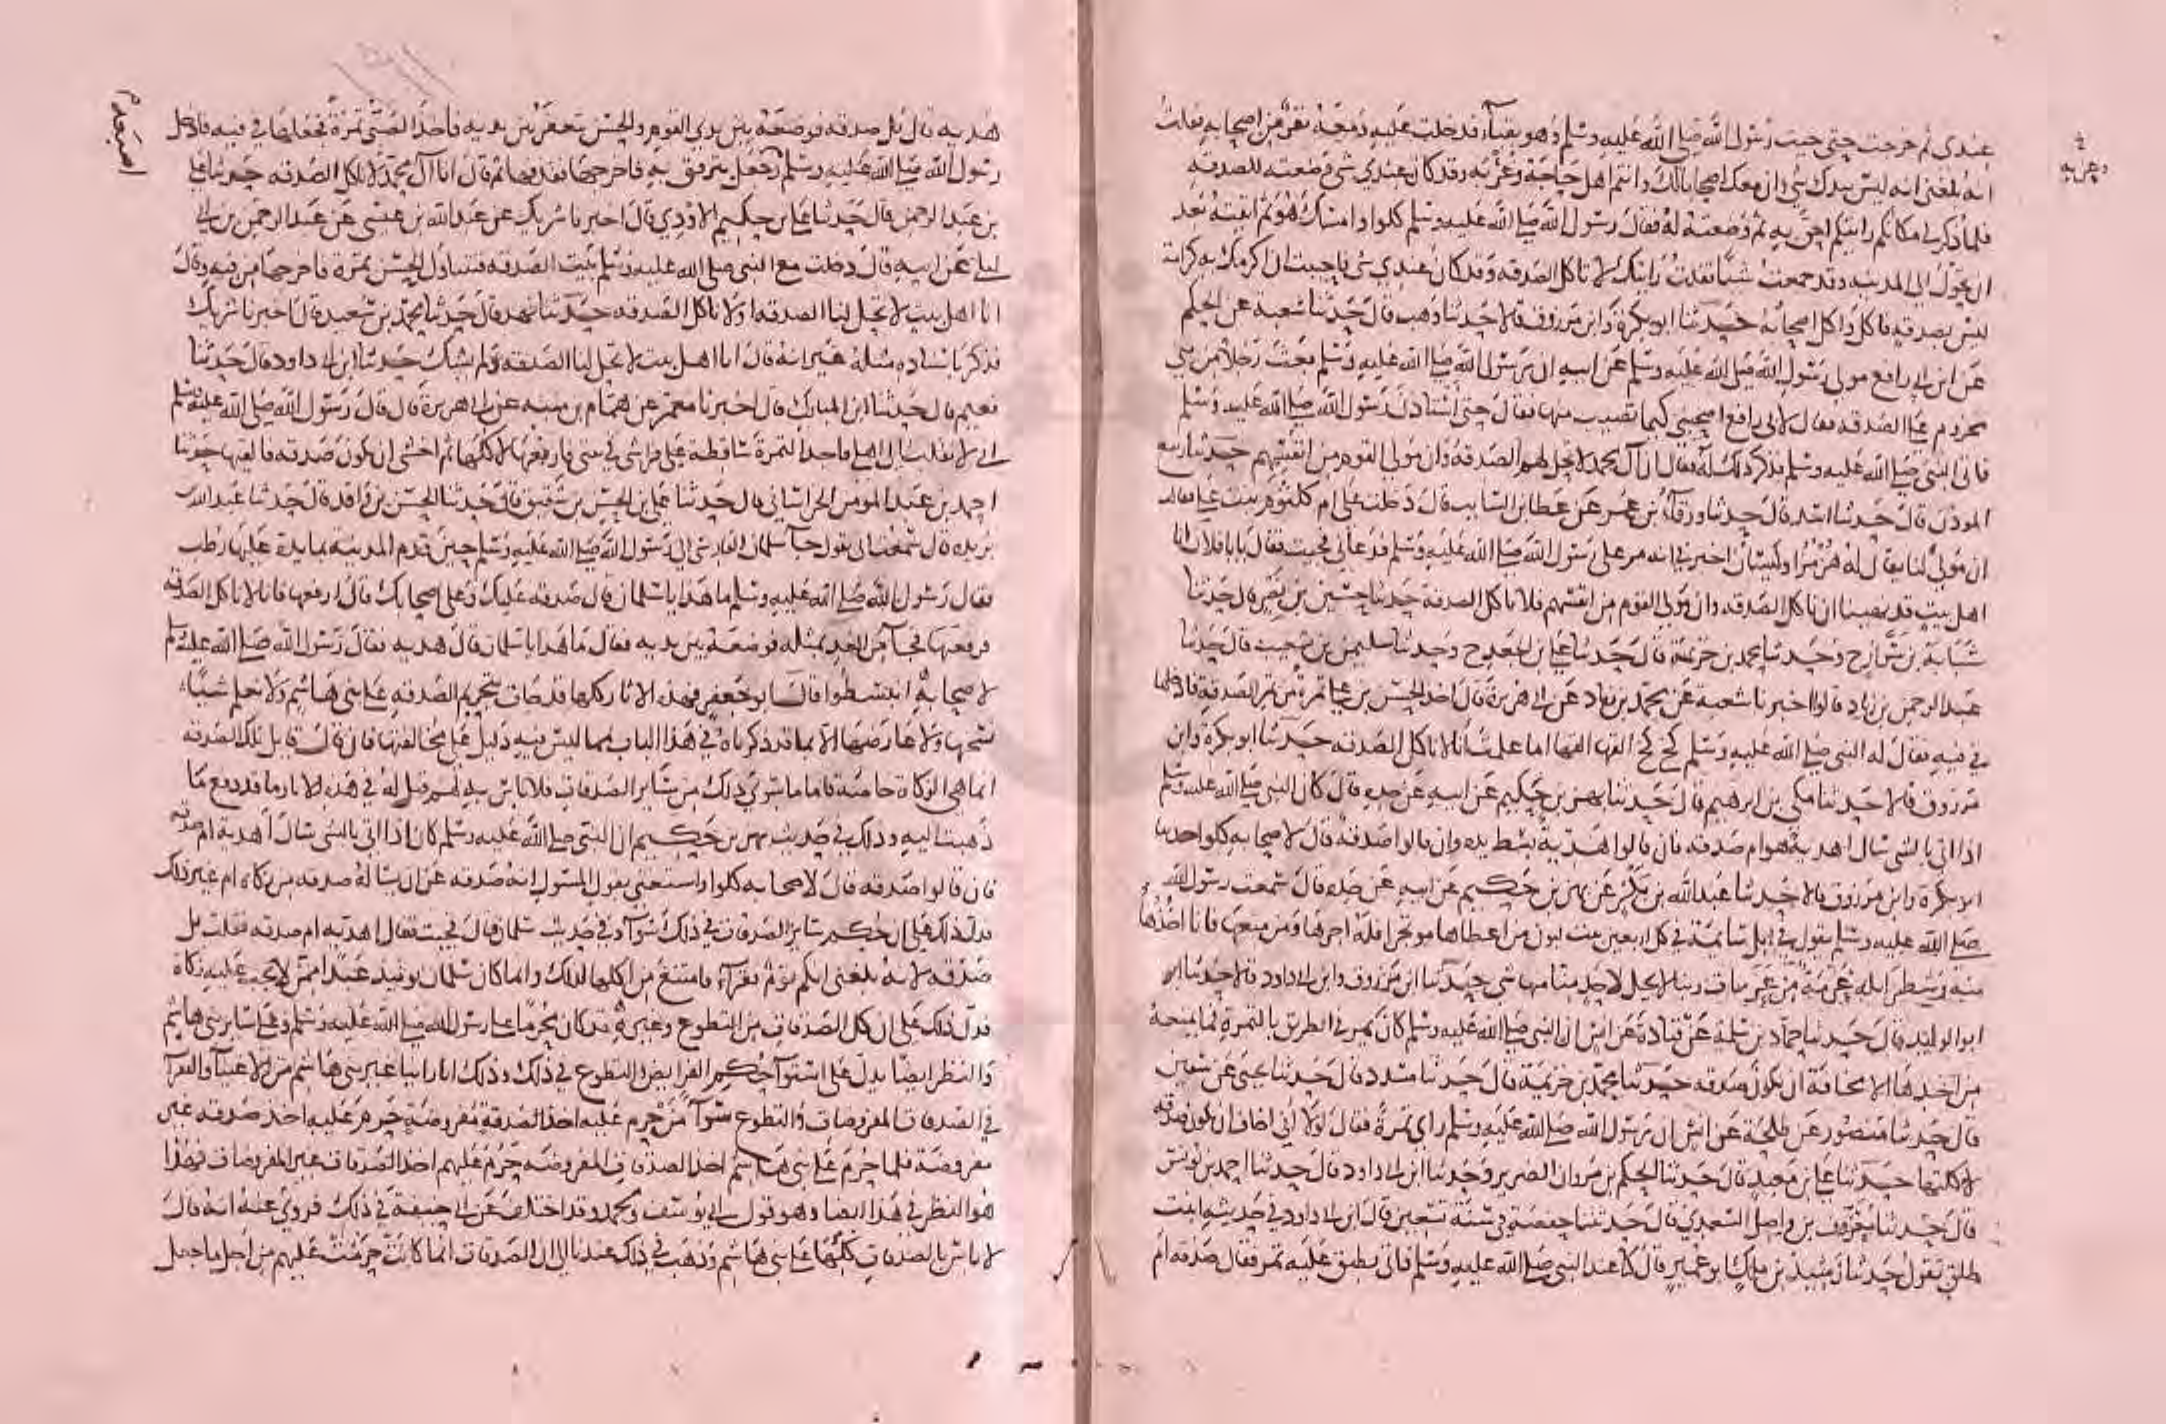 عندي ثم خرجت حتى جيت رسول الله صلى الله عليه وسلم وهو بقباء فدخلت عليه ومعه نفر من اصحابه فقلت
انه بلغني انه ليس بيدك شي وان معك اصحابا لك وانتم اهل حاجة وغربة وقد كان عندي شي وضعته للصدقة
فلما ذكر لي مكانكم رايتكم احق به ثم وضعته له فقال رسول الله صلى الله عليه وسلم كلوا وامسك هو ثم اتيته بعد
ان تحول الى المدينه وقد جمعت شيا فقلت رايتك لا تاكل الصدقه وقد كان عندي شي فاحببت ان اكرمك به كرامة
ليس بصدقه فاكل واكل اصحابه حدثنا ابو بكرة وابن مرزوق قالا حدثنا وهب قال حدثنا شعبه عن الحكم
عن ابن ابي رافع مولى رسول الله صلى الله عليه وسلم عن ابيه ان رسول الله صلى الله عليه وسلم بعث رجلا من بني
مخزوم على الصدقه فقال لابي رافع اصحبني كيما تصيب منها فقال حتى استاذن رسول الله صلى الله عليه وسلم
فاتى النبي صلى الله عليه وسلم فذكر ذلك له فقال ان آل محمد لا يحل لهم الصدقة وان مولى القوم من انفسهم حدثنا ربيع
الموذن قال حدثنا اسد قال حدثنا ورقاء بن عمر عن عطا بن السايب قال دخلت على ام كلثوم بنت علي فقالت
ان مولى لنا يقال له هرمز او كيسان اخبرني انه مر على رسول الله صلى الله عليه وسلم فدعاني فجيت فقال يا با فلان انا
اهل بيت قد نهينا ان ناكل الصدقه وان مولى القوم من انفسهم فلا تاكل الصدقة حدثنا حسين بن نصر قال حدثنا
شبابة بن سوار ح وحدثنا محمد بن خزيمة قال حدثنا علي بن الجعد ح وحدثنا سليمن بن شعيب قال حدثنا
عبد الرحمن بن زياد قالوا اخبرنا شعبة عن محمد بن زياد عن ابي هريرة قال اخذ الحسن بن علي تمرة من تمر الصدقة فادخلها
في فيه فقال له النبي صلى الله عليه وسلم كخ كخ القها القها اما علمت انا لا ناكل الصدقه حدثنا ابو بكرة وابن
مرزوق قالا حدثنا مكي بن ابرهيم قال حدثنا بهز بن حكيم عن ابيه عن جده قال كان النبي صلى الله عليه وسلم
اذا اتي بالشي سال اهديه هو ام صدقه فان قالوا هدية بسط يده وان قالوا صدقة قال لاصحابه كلوا حدثنا
ابو بكرة وابن مرزوق قالا حدثنا عبد الله بن بكر عن بهز بن حكيم عن ابيه عن جده قال سمعت رسول الله
صلى الله عليه وسلم يقول في ابل سايمة في كل اربعين بنت لبون من اعطاها موتجرا فله اجرها ومن منعها فانا اخذها
منه وشطر ابله عزمة من عزمات ربنا لا يحل لاحد منا منها شي حدثنا ابن مرزوق وابن ابي داود قالا حدثنا
ابو الوليد قال حدثنا حماد بن سلمة عن قتادة عن انس ان النبي صلى الله عليه وسلم كان يمر في الطريق بالتمرة فما يمنعه
من اخذها الا مخافة ان تكون صدقه حدثنا محمد بن خزيمة قال حدثنا مسدد قال حدثنا يحيى عن سفين
قال حدثنا منصور عن طلحة عن انس ان رسول الله صلى الله عليه وسلم راى تمرة فقال لولا اني اخاف ان تكون صدقه
لاكلتها حدثنا علي بن معبد قال حدثنا الحكم بن مروان الضرير وحدثنا ابن ابي داود قال حدثنا احمد بن يونس
قال حدثنا معرف بن واصل السعدي قال حدثتنا حفصة في سنة تسعين قال ابن ابي داود في حديثه ابنت
طلق تقول حدثنا رشيد بن مالك ابو عمير قال كنا عند النبي صلى الله عليه وسلم فاتي بطبق عليه تمر فقال صدقه ام
هديه قال بل صدقه فوضعه بين يدي القوم والحسن يتعفر بين يديه فاخذ الصبي تمرة فجعلها في فيه فادخل
رسول الله صلى الله عليه وسلم وجعل يترفق به فاخرجها فقذفها ثم قال انا آل محمد لا ناكل الصدقه حدثنا علي
بن عبد الرحمن قال حدثنا علي بن حكيم الاودي قال اخبرنا شريك عن عبد الله بن عيسى عن عبد الرحمن بن ابي
ليلى عن ابيه قال دخلت مع النبي صلى الله عليه وسلم بيت الصدقه فتناول الحسن تمرة فاخرجها من فيه وقال
انا اهل بيت لا تحل لنا الصدقه او لا ناكل الصدقه حدثنا فهد قال حدثنا محمد بن سعيد قال اخبرنا شريك
فذكر باسناده مثله غير انه قال انا اهل بيت لا تحل لنا الصدقه ولم يشك حدثنا ابن ابي داود قال حدثنا
نعيم قال حدثنا ابن المبارك قال اخبرنا معمر عن همام بن منبه عن ابي هريرة قال قال رسول الله صلى الله عليه وسلم
اني لانقلب الى اهلي فاجد التمرة ساقطة على فراشي في بيتي فارفعها لاكلها ثم اخشى ان تكون صدقه فالقيها حدثنا
احمد بن عبد المومن الخراساني قال حدثنا علي بن الحسن بن شقيق قال حدثنا الحسن بن واقد قال حدثنا عبد الله بن
بريده قال سمعت ابي يقول جا سلمان الفارسي الى رسول الله صلى الله عليه وسلم حين قدم المدينة بمايدة عليها رطب
فقال رسول الله صلى الله عليه وسلم ما هذا يا سلمان قال صدقه عليك وعلى اصحابك قال ارفعها فانا لا ناكل الصدقه
فرفعها فجا من الغد بمثله فوضعه بين يديه فقال ما هذا يا سلمان قال هديه فقال رسول الله صلى الله عليه وسلم
لاصحابه انبسطوا قال ابو جعفر فهذه الاثار كلها قد جات بتحريم الصدقه على بني هاشم ولا نعلم شيا
نسخها ولا عارضها الا ما قد ذكرناه في هذا الباب مما ليس فيه دليل على مخالفتها فان قال قايل تلك الصدقه
انما هي الزكاة خاصة فاما ما سوى ذلك من ساير الصدقات فلا باس به قيل له في هذه الاثار ما قد دفع ما
ذهبت اليه وذلك في حديث بهز بن حكيم ان النبي صلى الله عليه وسلم كان اذا اتي بالشي سال اهدية ام صدقه
فان قالوا صدقه قال لاصحابه كلوا واستغنى بقول المسول انه صدقه عن ان يساله صدقه من زكاه ام غير ذلك
فدل ذلك على ان حكم ساير الصدقات في ذلك سوآ وفي حديث سلمان قال فجيت فقال اهديه ام صدقه فقلت بل
صدقه لانه بلغني انكم قوم فقرآء فامتنع من اكلها لذلك وانما كان سلمان يوميذ عبدا ممن لا يجب عليه زكاة
فدل ذلك على ان كل الصدقات من التطوع وغيره قد كان محرما على رسول الله صلى الله عليه وسلم وعلى ساير بني هاشم
والنظر ايضا يدل على استوآ حكم الفرايض والتطوع في ذلك وذلك انا راينا غير بني هاشم من الاغنيآ والفقرآ
في الصدقات المفروضات والتطوع سوآ من حرم عليه اخذ الصدقة مفروضة حرم عليه اخذ صدقه غير
مفروضة فلما حرم على بني هاشم اخذ الصدقات المفروضه حرم عليهم اخذ الصدقات غير المفروضات فهذا
هو النظر في هذا الباب ايضا وهو قول ابي يوسف ومحمد وقد اختلف عن ابي حنيفة في ذلك فروي عنه انه قال
لا باس بالصدقات كلها على بني هاشم وذهب في ذلك عندنا الى ان الصدقات انما كانت حرمت عليهم من اجل ما جعل
اصبعه